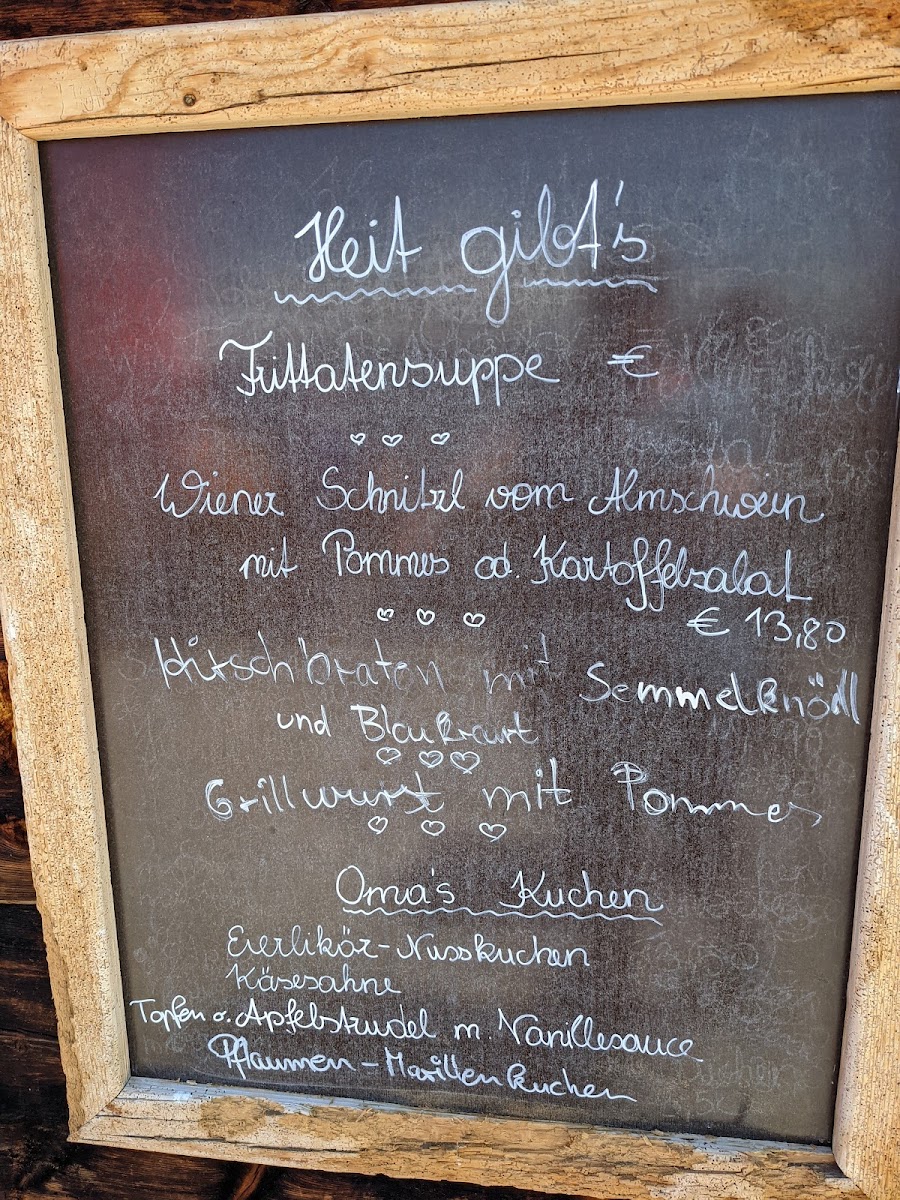 Heit gibt's
Frittatensuppe €
Wiener Schnitzl vom Almschwein
mit Pommes od. Kartoffelsalat
€ 13,80
Hirschbraten mit Semmelknödl
und Blaukraut
Grillwurst mit Pommes
Oma's Kuchen
Eierlikör-Nusskuchen
Käsesahne
Topfen o. Apfelstrudel m. Vanillesauce
Pflaumen-Marillenkuchen